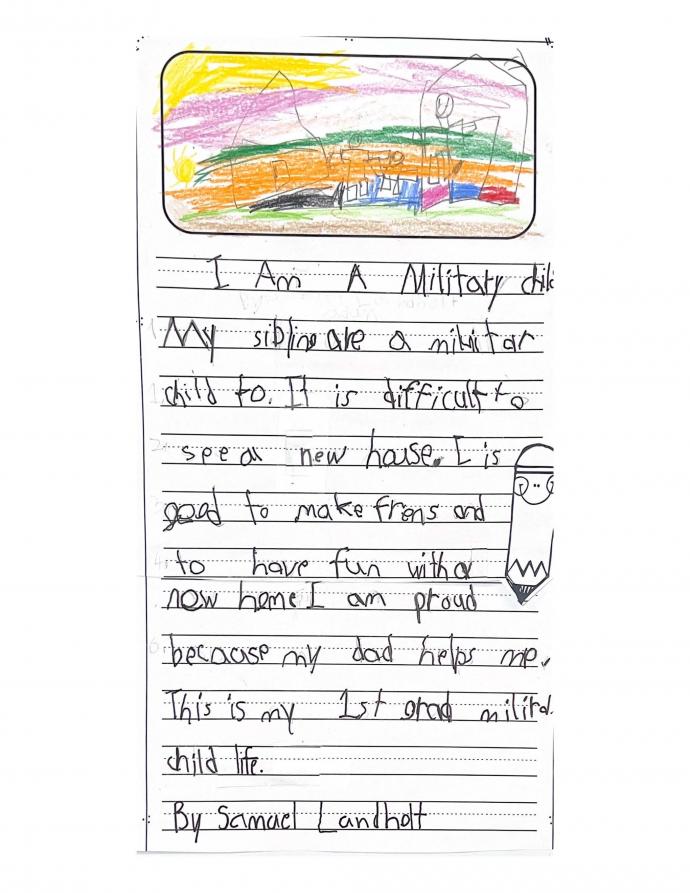 I Am A Military child
My sibling are a militar
child to. It is difficult to
see a new house. I is
good to make frens and
to have fun with a
now home I am proud
because my dad helps me.
This is my 1st grad militar
child life.
By Samuel Landholt